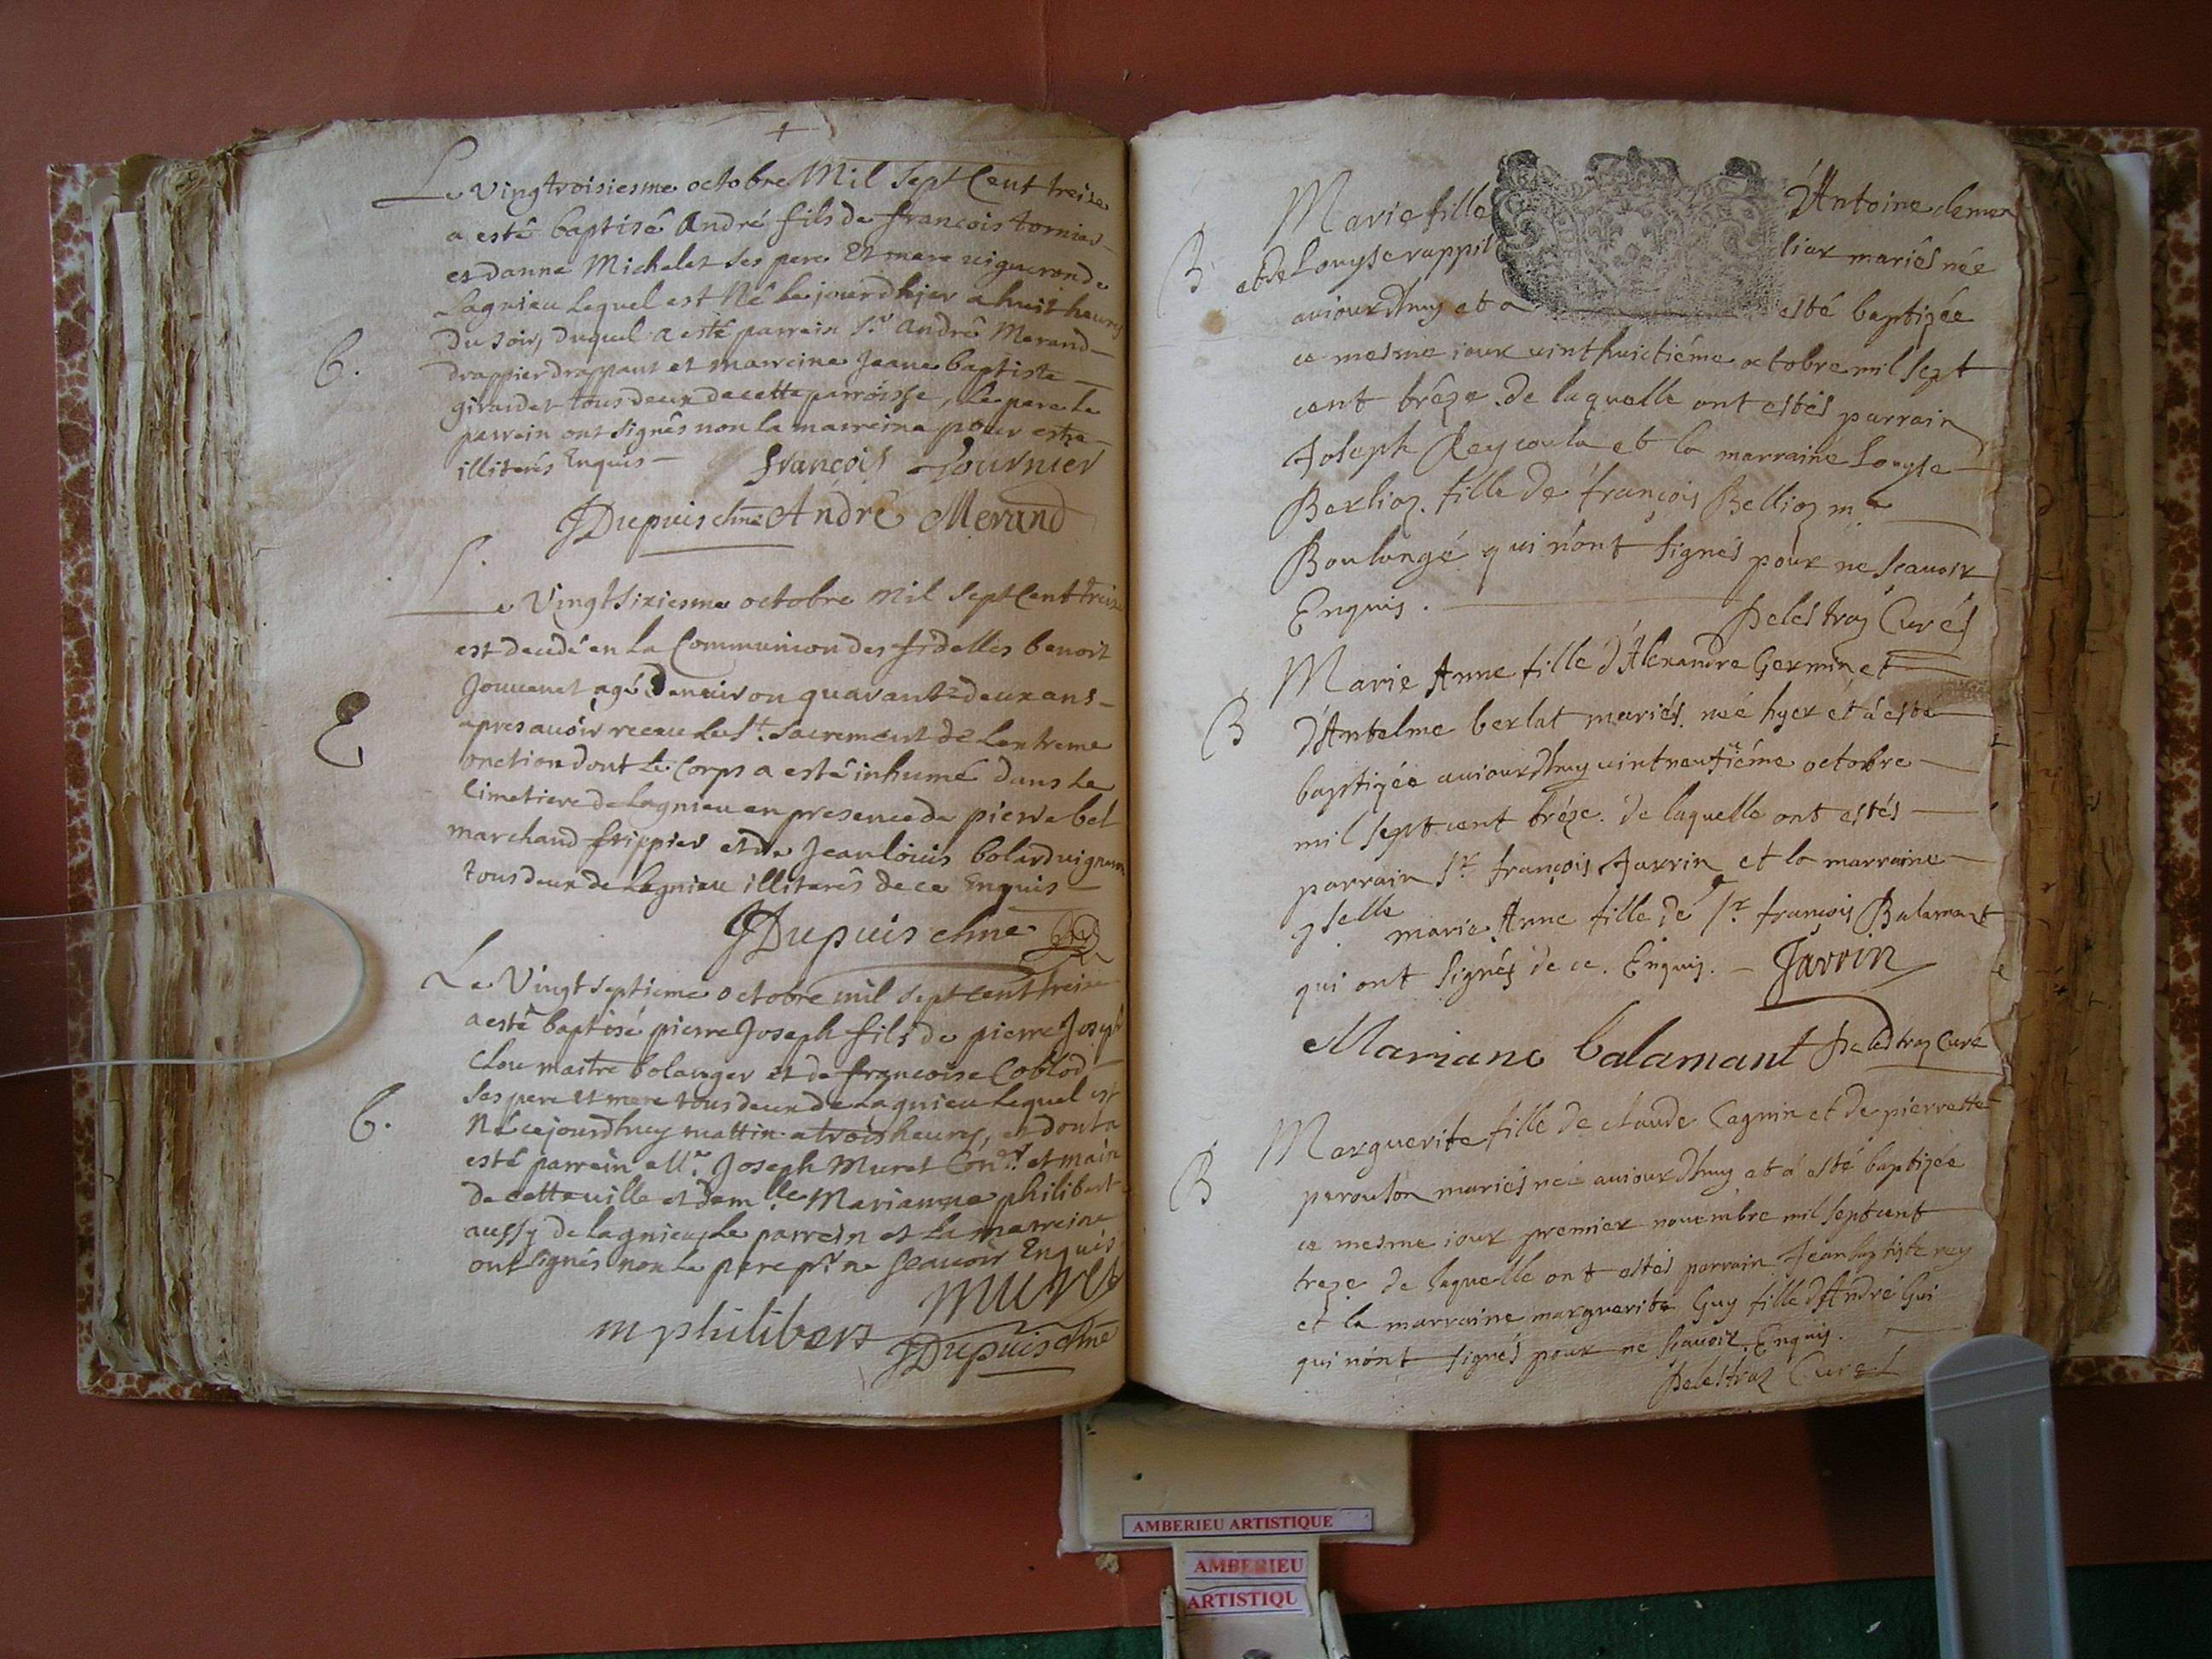 Le Vingtroisiesme octobre Mil Sept Cent treize
a esté baptisé André fils de françois tornier
et danne Michelet ses pere Et mere vigneron de
Lagnieu Lequel est Né le jourdhier a huit heures
Du soir, duquel a esté parrein Sr André Merand
B.
drappier drappant et marreine Jeane baptiste
girardet tous deux de cette parroisse, le pere le
parrein ont signés non la marreine pour estre
illiterés Enquis
françois Tournier
JDupuis chne André Merand
Le Vingtsixiesme octobre Mil Sept Cent treize
est decedé en La Communion des fidelles benoit
Jouvenet agé Denviron quarante deux ans
E
apres avoir receu le St. Sacrement de Lextreme
onction dont Le Corps a esté inhumé dans le
Cimetiere de Lagnieu en presence de pierre bel
marchand frippier et de Jean louis bolard vigneron
tous deux de Lagnieu illiterés de ce Enquis
JDupuis chne
Le Vingt septieme octobre mil sept cent treize
a esté baptisé pierre Joseph fils de pierre Joseph
Clou maitre bolanger et de françoise Coblod
ses pere et mere tous deux de Lagnieu Lequel est
B.
Né cejourdhuy mattin a trois heures, et dont a
esté parrein Mr. Joseph Muret et main
de cette ville et dem.lle Marianne philibert
aussy de lagnieu, Le parrein et La marreine
ont signés non Le pere pr. ne scavoir Enquis
Muret
m philibert JDupuis chne
Marie fille d'Antoine
B et de Louyse rappil mariés née
aujourdhuy et a esté baptizée
ce mesme jour vinthuictiéme octobre mil sept
cent tréze. de laquelle ont estés parrain
Joseph Reycoula et la marraine Louyse
Berlioz. fille de françois Bellioz me
Boulangé qui n'ont signés pour ne scavoir
Enquis.
Delestraz Curés
Marie Anne fille d'Alexandre Germin et
B d'Antelme berlat mariés. neé hyer et á esté
baptizée aujourdhuy vintneufiéme octobre
mil sept cent tréze. de laquelle ont estés
parrain Sr. françois Jarrin et la marraine
dselle marie Anne fille de Sr. françois Balamant
qui ont signés de ce. Enquis. Jarrin
Mariane balamant Delestraz Curé
Marguerite fille de claude Cagnin et de pierrette
B perouson mariés neé aujourdhuy et á esté baptizée
ce mesme jour premier novembre mil sept cent
treze de laquelle ont estés parrain Jean baptiste rey
et la marraine marguerite Guy fille d'André Gui
qui n'ont signés pour ne scavoir. Enquis.
Delestraz Curé
AMBERIEU ARTISTIQUE
AMBERIEU
ARTISTIQU